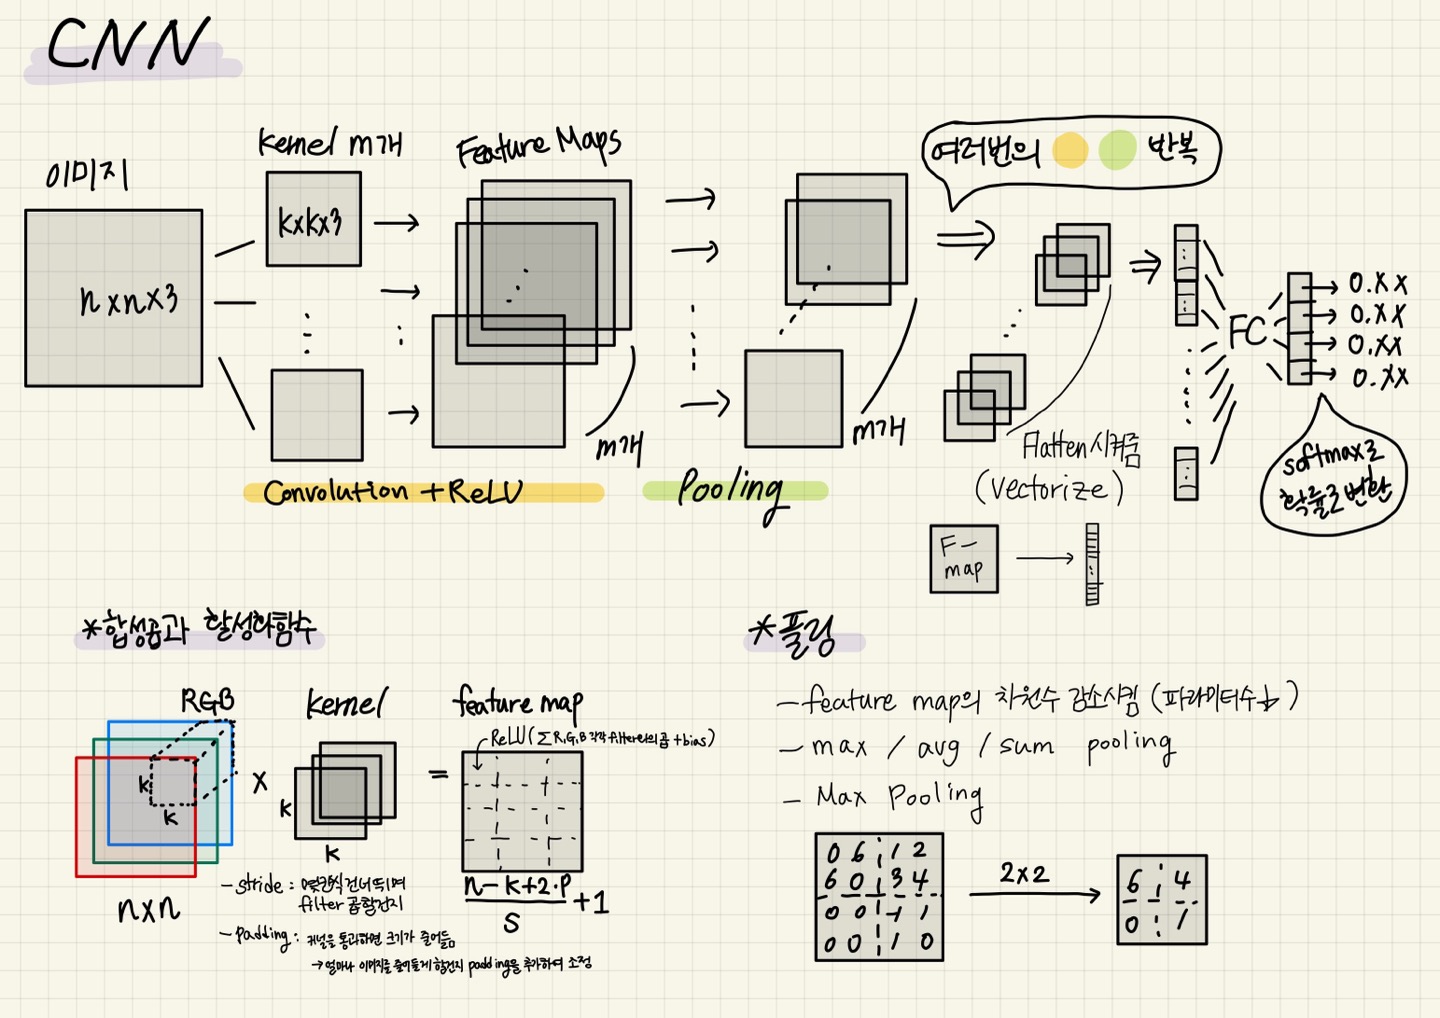 CNN
이미지
n×n×3
Kernel m개
k×k×3
Feature Maps
m개
Convolution + ReLU
m개
Pooling
여러번의 반복
Flatten시켜줌
(Vectorize)
F-
map
FC
0.XX
0.XX
0.XX
0.XX
softmax로
확률로 변환
*합성곱과 활성화함수
RGB
k
k
n×n
×
kernel
k
k
=
feature map
ReLU(∑R,G,B 각각 filter와의 곱 +bias)
n-k+2·P
S
+1
- stride : 몇칸씩 건너뛰며
filter 곱할건지
- padding : 커널을 통과하면 크기가 줄어듦
→ 얼마나 이미지를 줄어들게 할건지 padding을 추가하여 조정
*풀링
- feature map의 차원수 감소시킴 (파라미터수↓)
- max / avg / sum pooling
- Max Pooling
0 6 1 2
6 0 3 4
0 0 -1 1
0 0 1 0
2×2
6 4
0 1